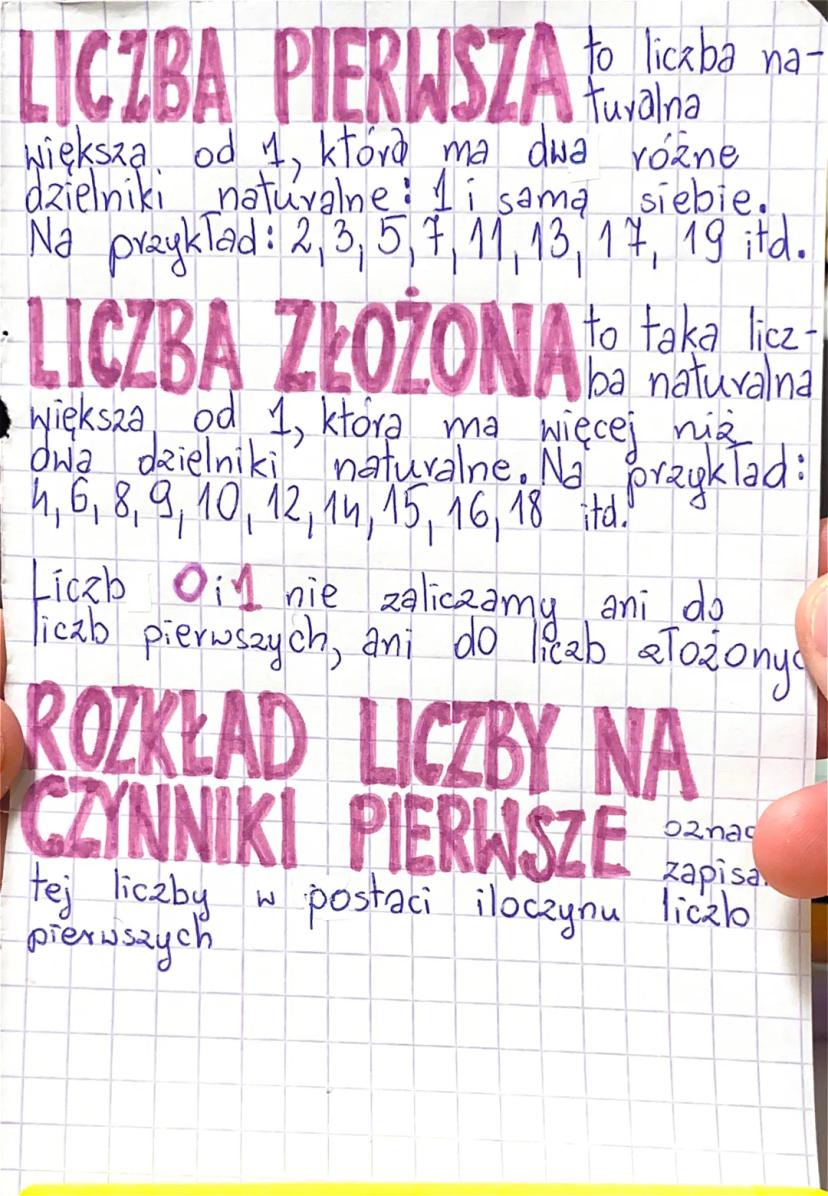 LICZBA PIERWSZA to liczba na-
turalna
większa od 1, która ma dwa różne
dzielniki naturalne: 1 i samą siebie.
Na przykład: 2, 3, 5, 7, 11, 13, 17, 19 itd.
LICZBA ZŁOŻONA to taka licz-
ba naturalna
większa od 1, która ma więcej niż
dwa dzielniki naturalne. Na przykład:
4, 6, 8, 9, 10, 12, 14, 15, 16, 18 itd.
Liczb 0 i 1 nie zaliczamy ani do
liczb pierwszych, ani do liczb złożonyc
ROZKŁAD LICZBY NA
CZYNNIKI PIERWSZE oznac
zapisa
tej liczby w postaci iloczynu liczb
pierwszych